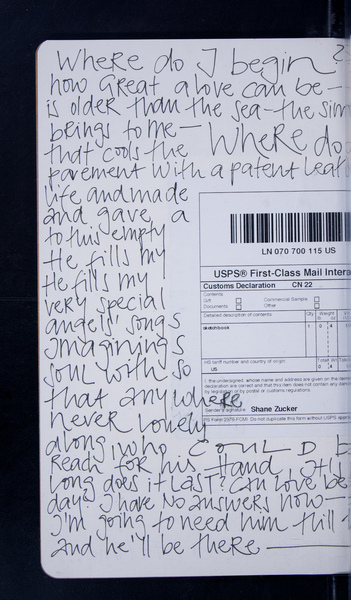 Where do I begin?
how Great a love can be—
is older than the sea—the sim
brings to me— Where do
that cools the
pavement with a patent leat
life and made
and gave, a
to this empty
He fills my
He fills my
very special
angels' songs
imaginings
soul with so
that anywhere
never lonely
along, who COULD b
Reach for his Hand It's
Long does it Last? Can Love be
day? I have No answers now—
I'm going to need him till t
and he'll be there —
LN 070 700 115 US
USPS® First-Class Mail Intern
Customs Declaration CN 22
Contents
Gift Commercial Sample
Documents Other
Detailed description of contents Qty Weight
sketchbook 1 0 4
HS tariff number and country of origin
US 0 4
I, the undersigned, whose name and address are given on the item
declaration are correct and that this item does not contain any
by legislation or by postal or customs regulations.
Sender's signature Shane Zucker
Do not duplicate this form without USPS